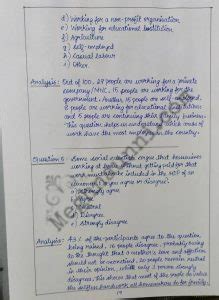 d) Working for a non-profit organisation
e) Working for educational Institution
f) Agriculture
g) Self-employed
h) Casual labour
i) Other.
Analysis: Out of 100, 28 people are working for a private
company/MNC, 15 people are working for the
government. Another 15 people are self-
8 people are working for educational institutions
and 5 people are continuing their family business.
This question helps us understand which kinds of
work have the most employment in the country.
Question 5: Some social scientists argue that housewives
working at home without getting paid for that
work must be included in the GDP of an
economy. Do you agree or disagree?
a) Strongly agree
Neutral
Disagree
Strongly disagree
Analysis: 43% of the participants agree to the question
being raised, 10 people disagree, probably owing
to the thought that a mother's love and affection
should not be monetised. 20 people remain neutral
in their opinion, while only 2 person strongly
disagree. This shows that most of the people do value
the selfless homework